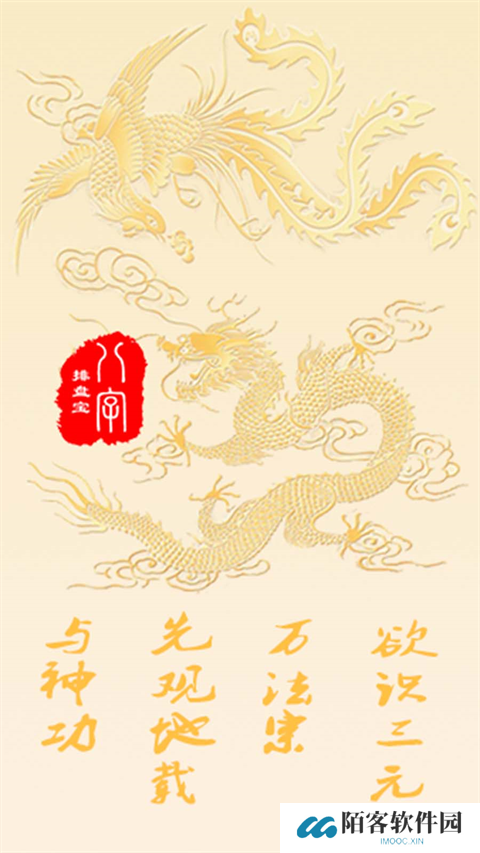 八字
排盘宝
欲识三元
万法宗
先观地载
与神功
陌客软件园
IMOOC.XIN